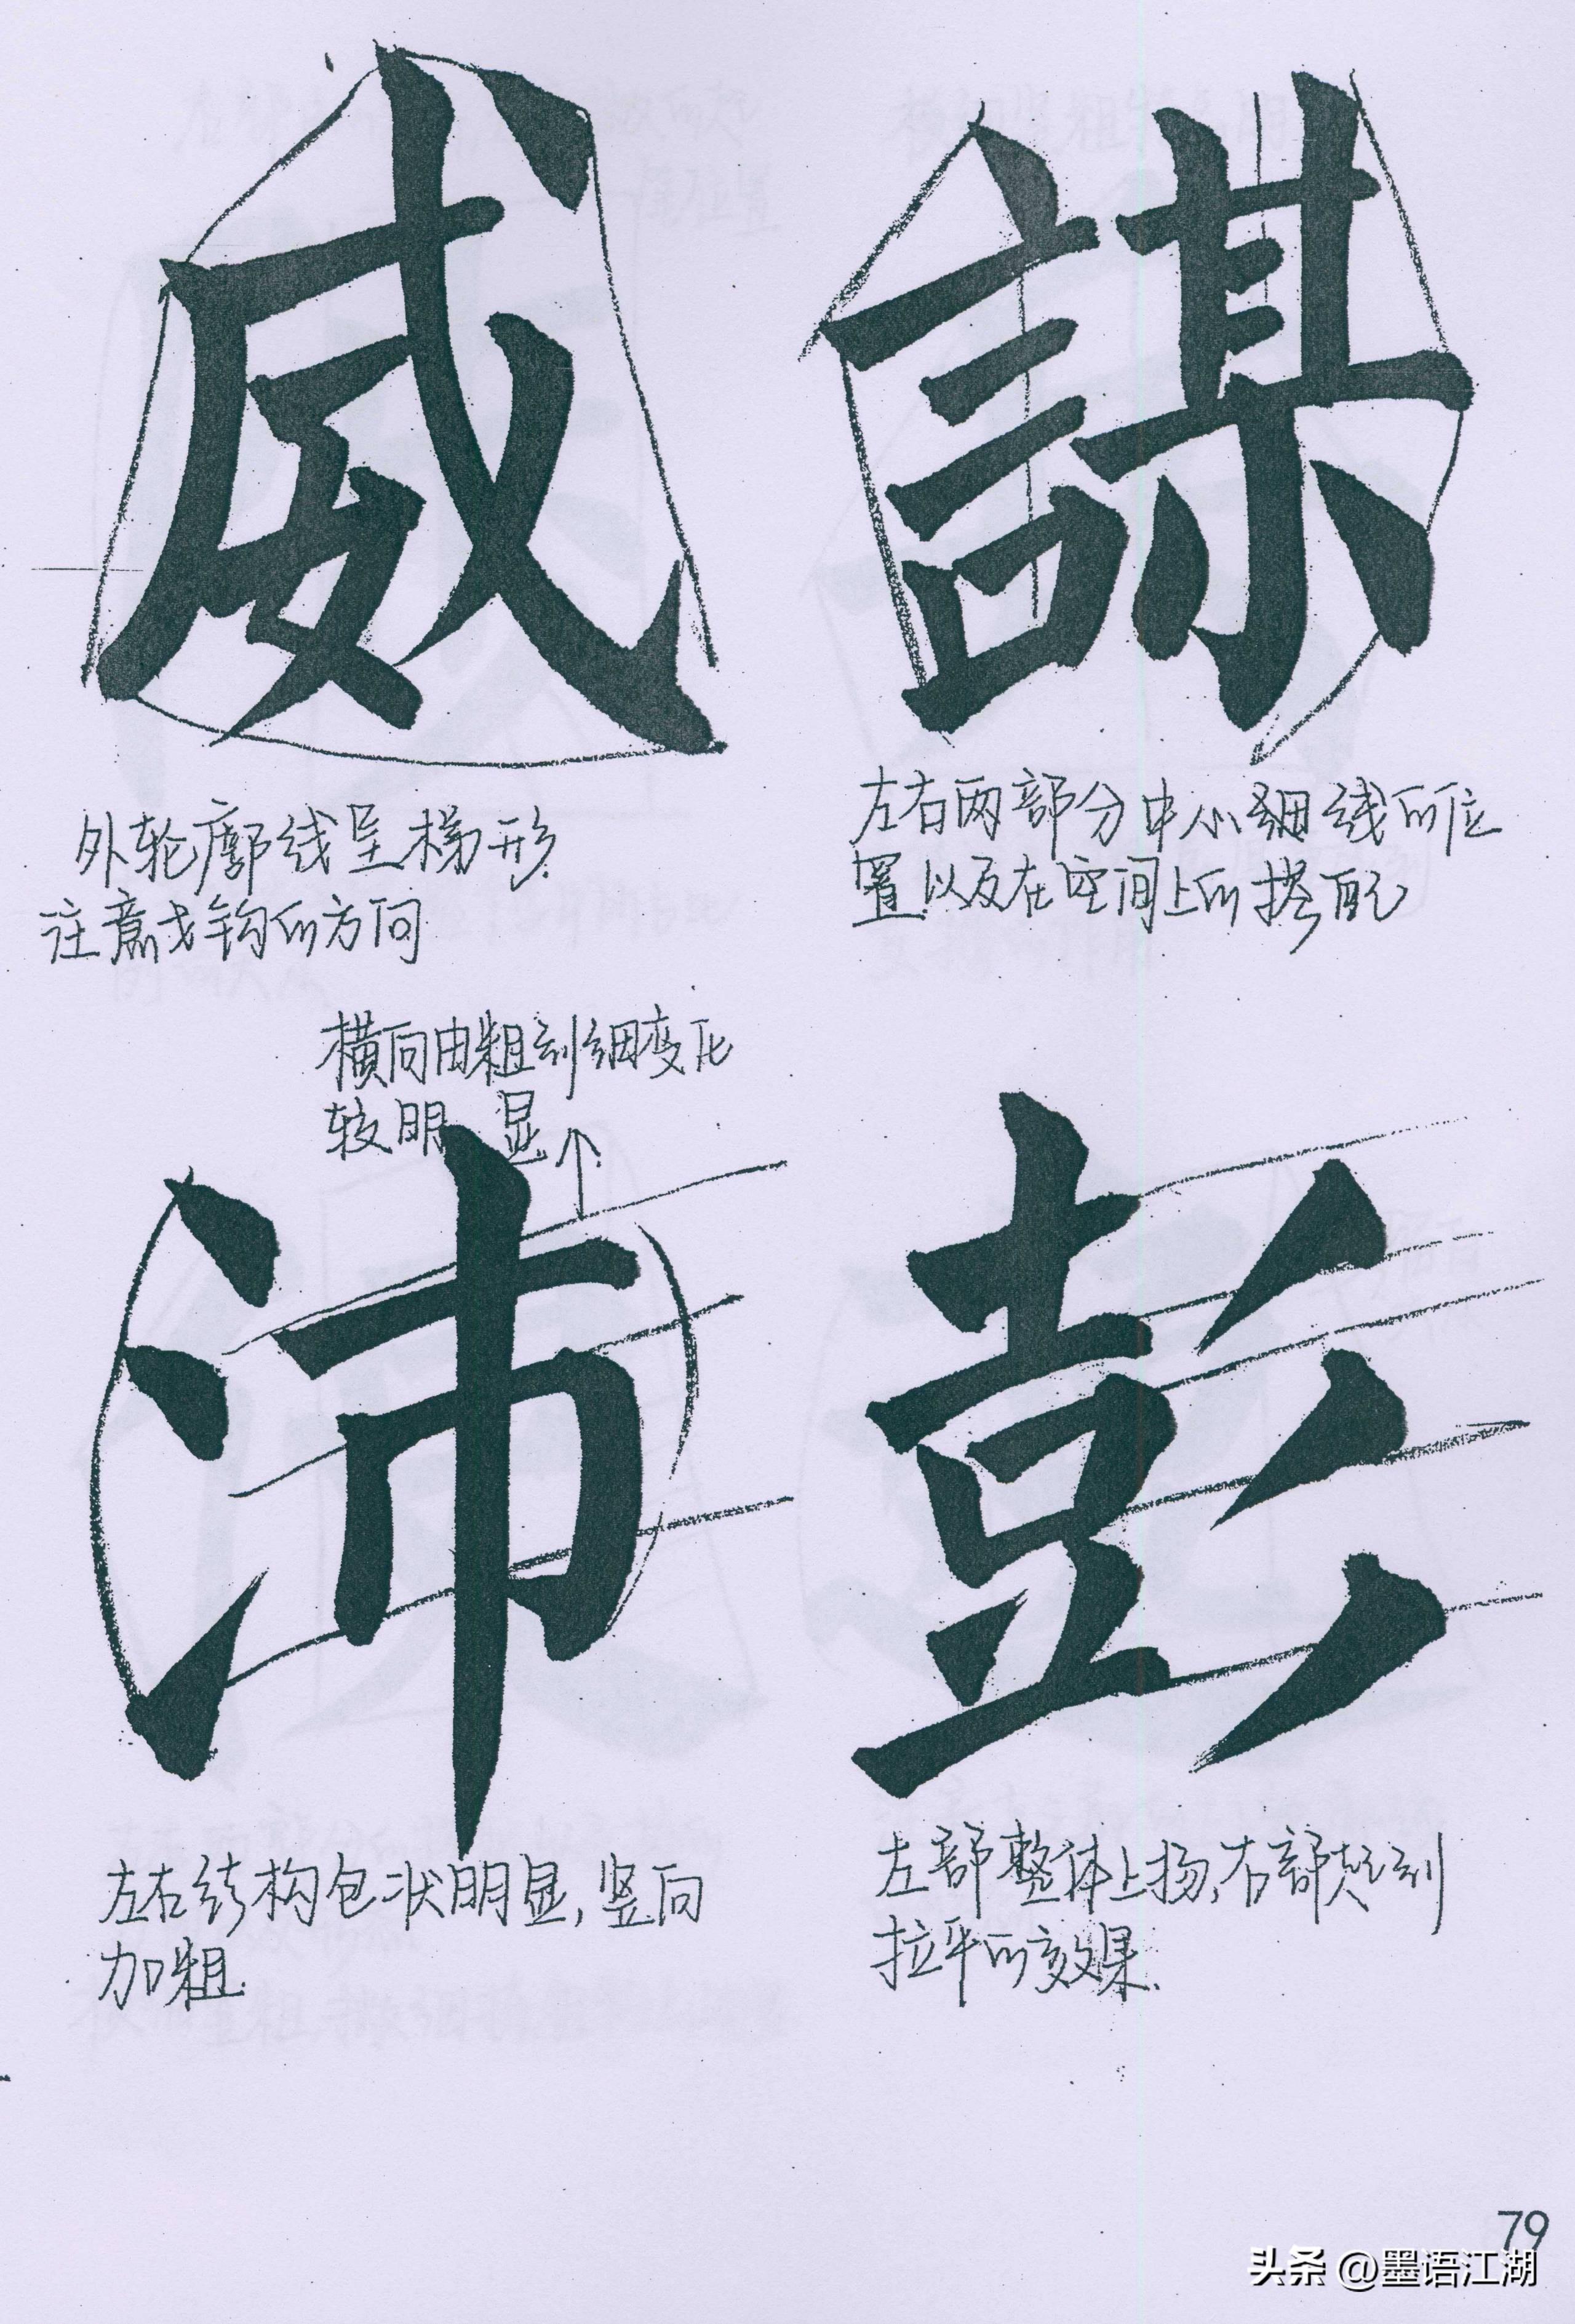 威
謀
外轮廓线呈梯形
注意戈钩的方向
左右两部分中小细线的位
置以及在空间上的搭配
横向由粗到细变化
较明显
沛
彭
左右结构包状明显,竖向
加粗.
左部整体上扬,右部起到
拉平的效果.
79
头条 @墨语江湖